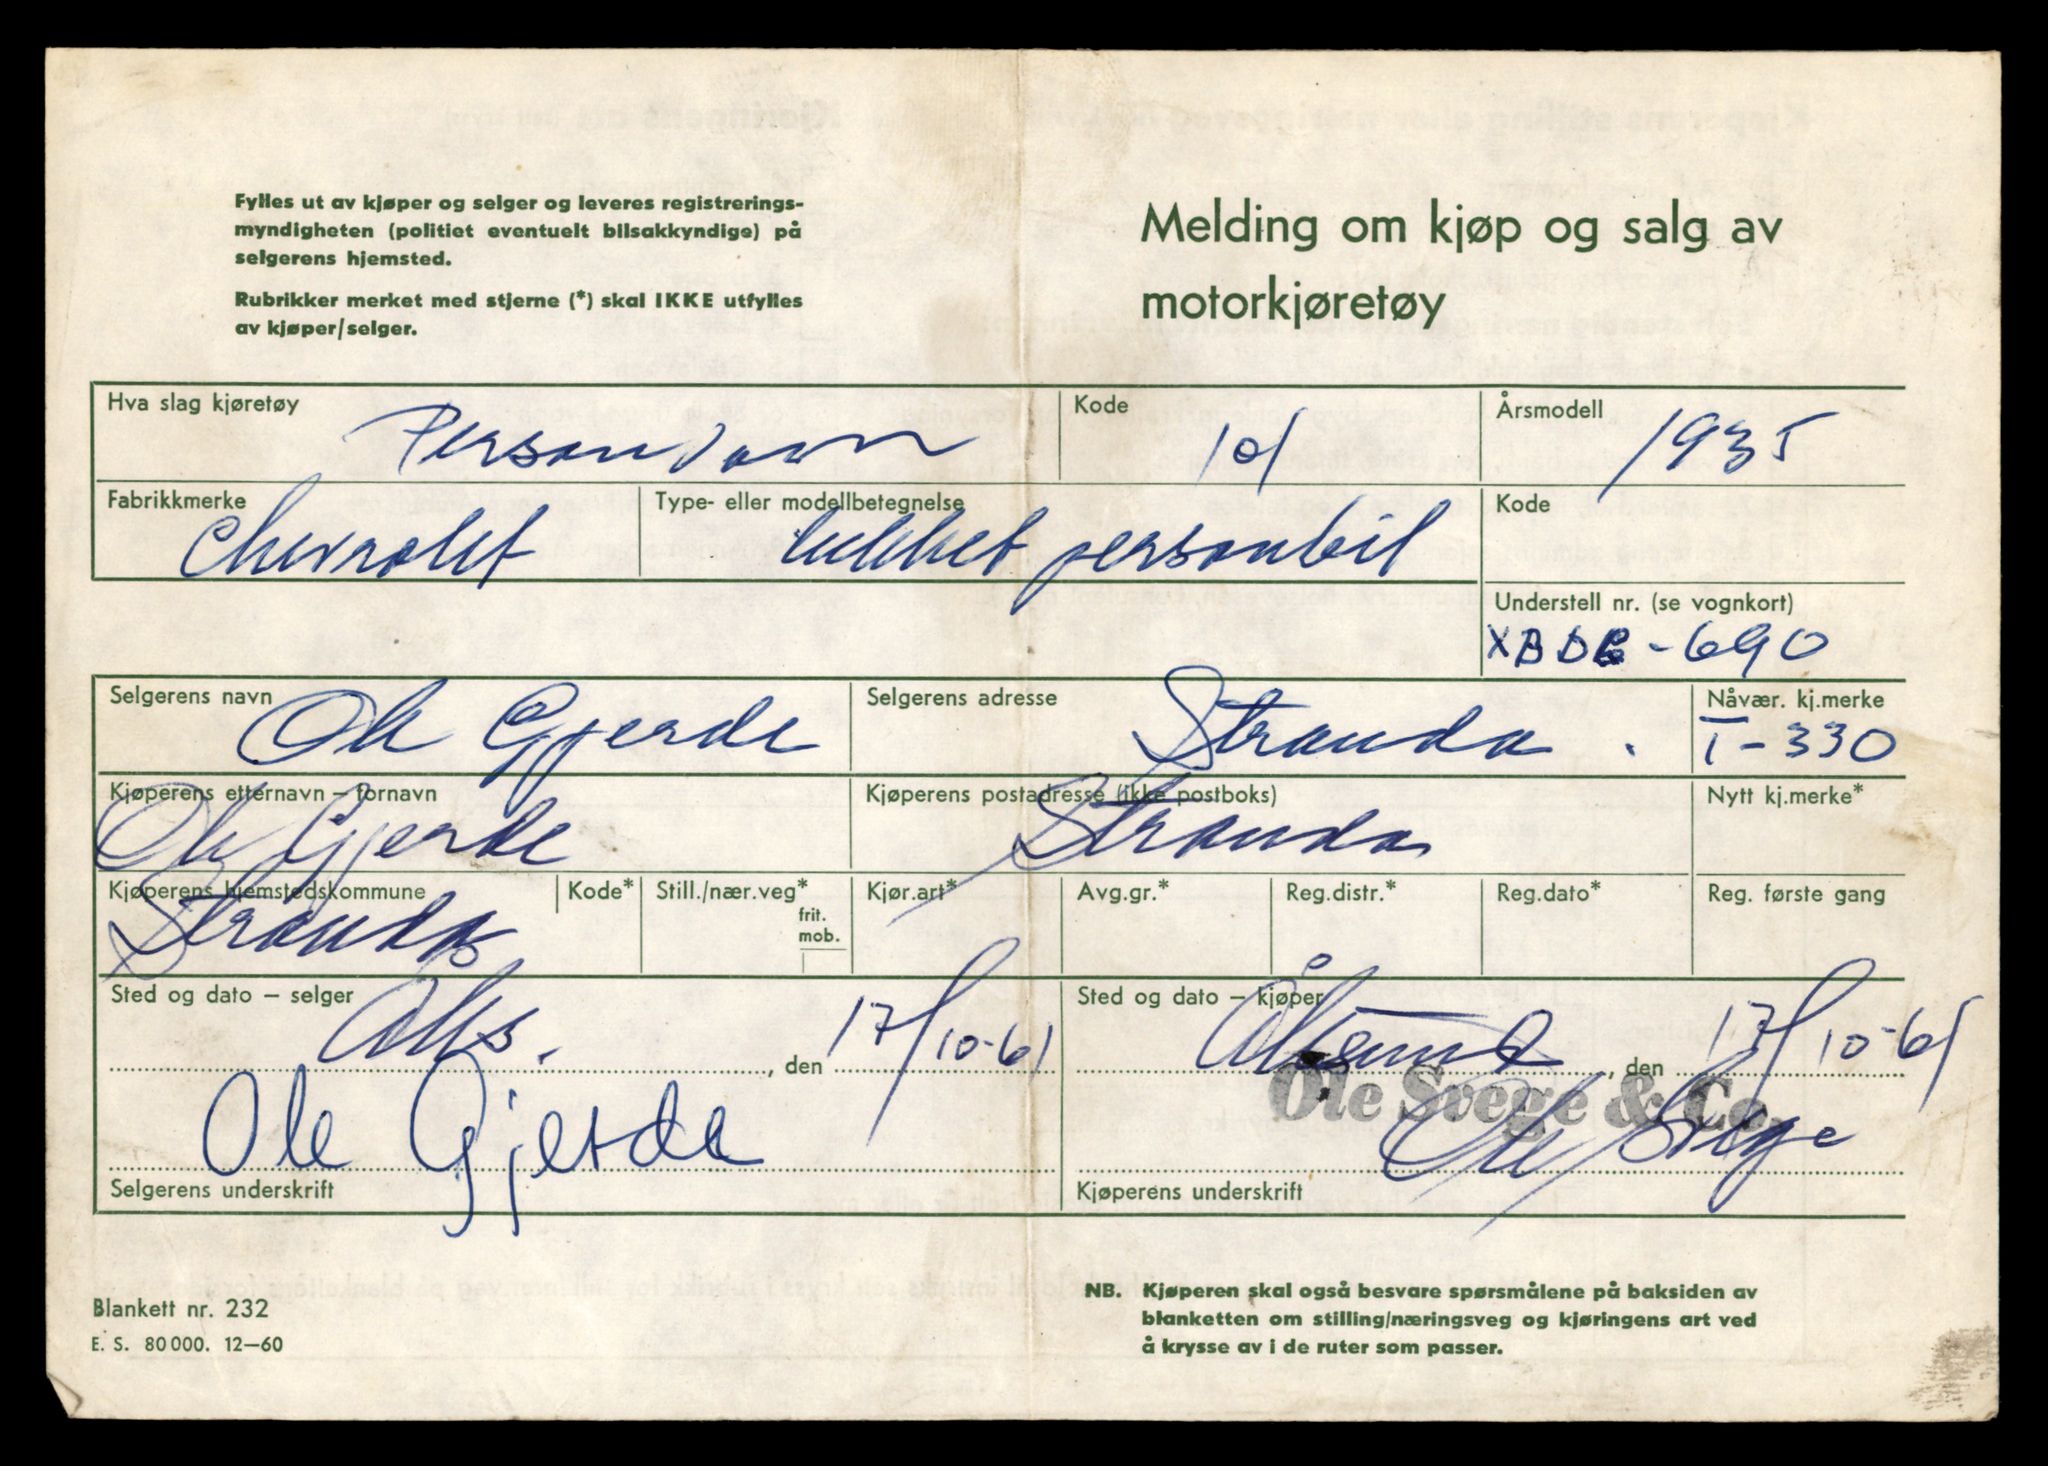 Fylles ut av kjøper og selger og leveres registrerings-
myndigheten (politiet eventuelt bilsakkyndige) på
selgerens hjemsted.
Rubrikker merket med stjerne (*) skal IKKE utfylles
av kjøper/selger.
Melding om kjøp og salg av
motorkjøretøy
Hva slag kjøretøy
Personvogn
Kode
101
Årsmodell
1935
Fabrikkmerke
Chevrolet
Type- eller modellbetegnelse
lukket personbil
Kode
Understell nr. (se vognkort)
-690
Selgerens navn
Ole Gjerde
Selgerens adresse
Stranda.
Nåvær. kj.merke
T-330
Kjøperens etternavn – fornavn
Ole Gjerde
Kjøperens postadresse (ikke postboks)
Stranda
Nytt kj.merke*
Kjøperens hjemstedskommune
Stranda
Kode*
Still./nær.veg*
frit.
mob.
Kjør.art*
Avg.gr.*
Reg.distr.*
Reg.dato*
Reg. første gang
Sted og dato – selger
, den 17/10-61
Ole Gjerde
Selgerens underskrift
Sted og dato – kjøper
Ålesund, den 17/10-61
Ole Svege & Co.
Ole Svege
Kjøperens underskrift
Blankett nr. 232
E. S. 80 000. 12–60
NB. Kjøperen skal også besvare spørsmålene på baksiden av
blanketten om stilling/næringsveg og kjøringens art ved
å krysse av i de ruter som passer.